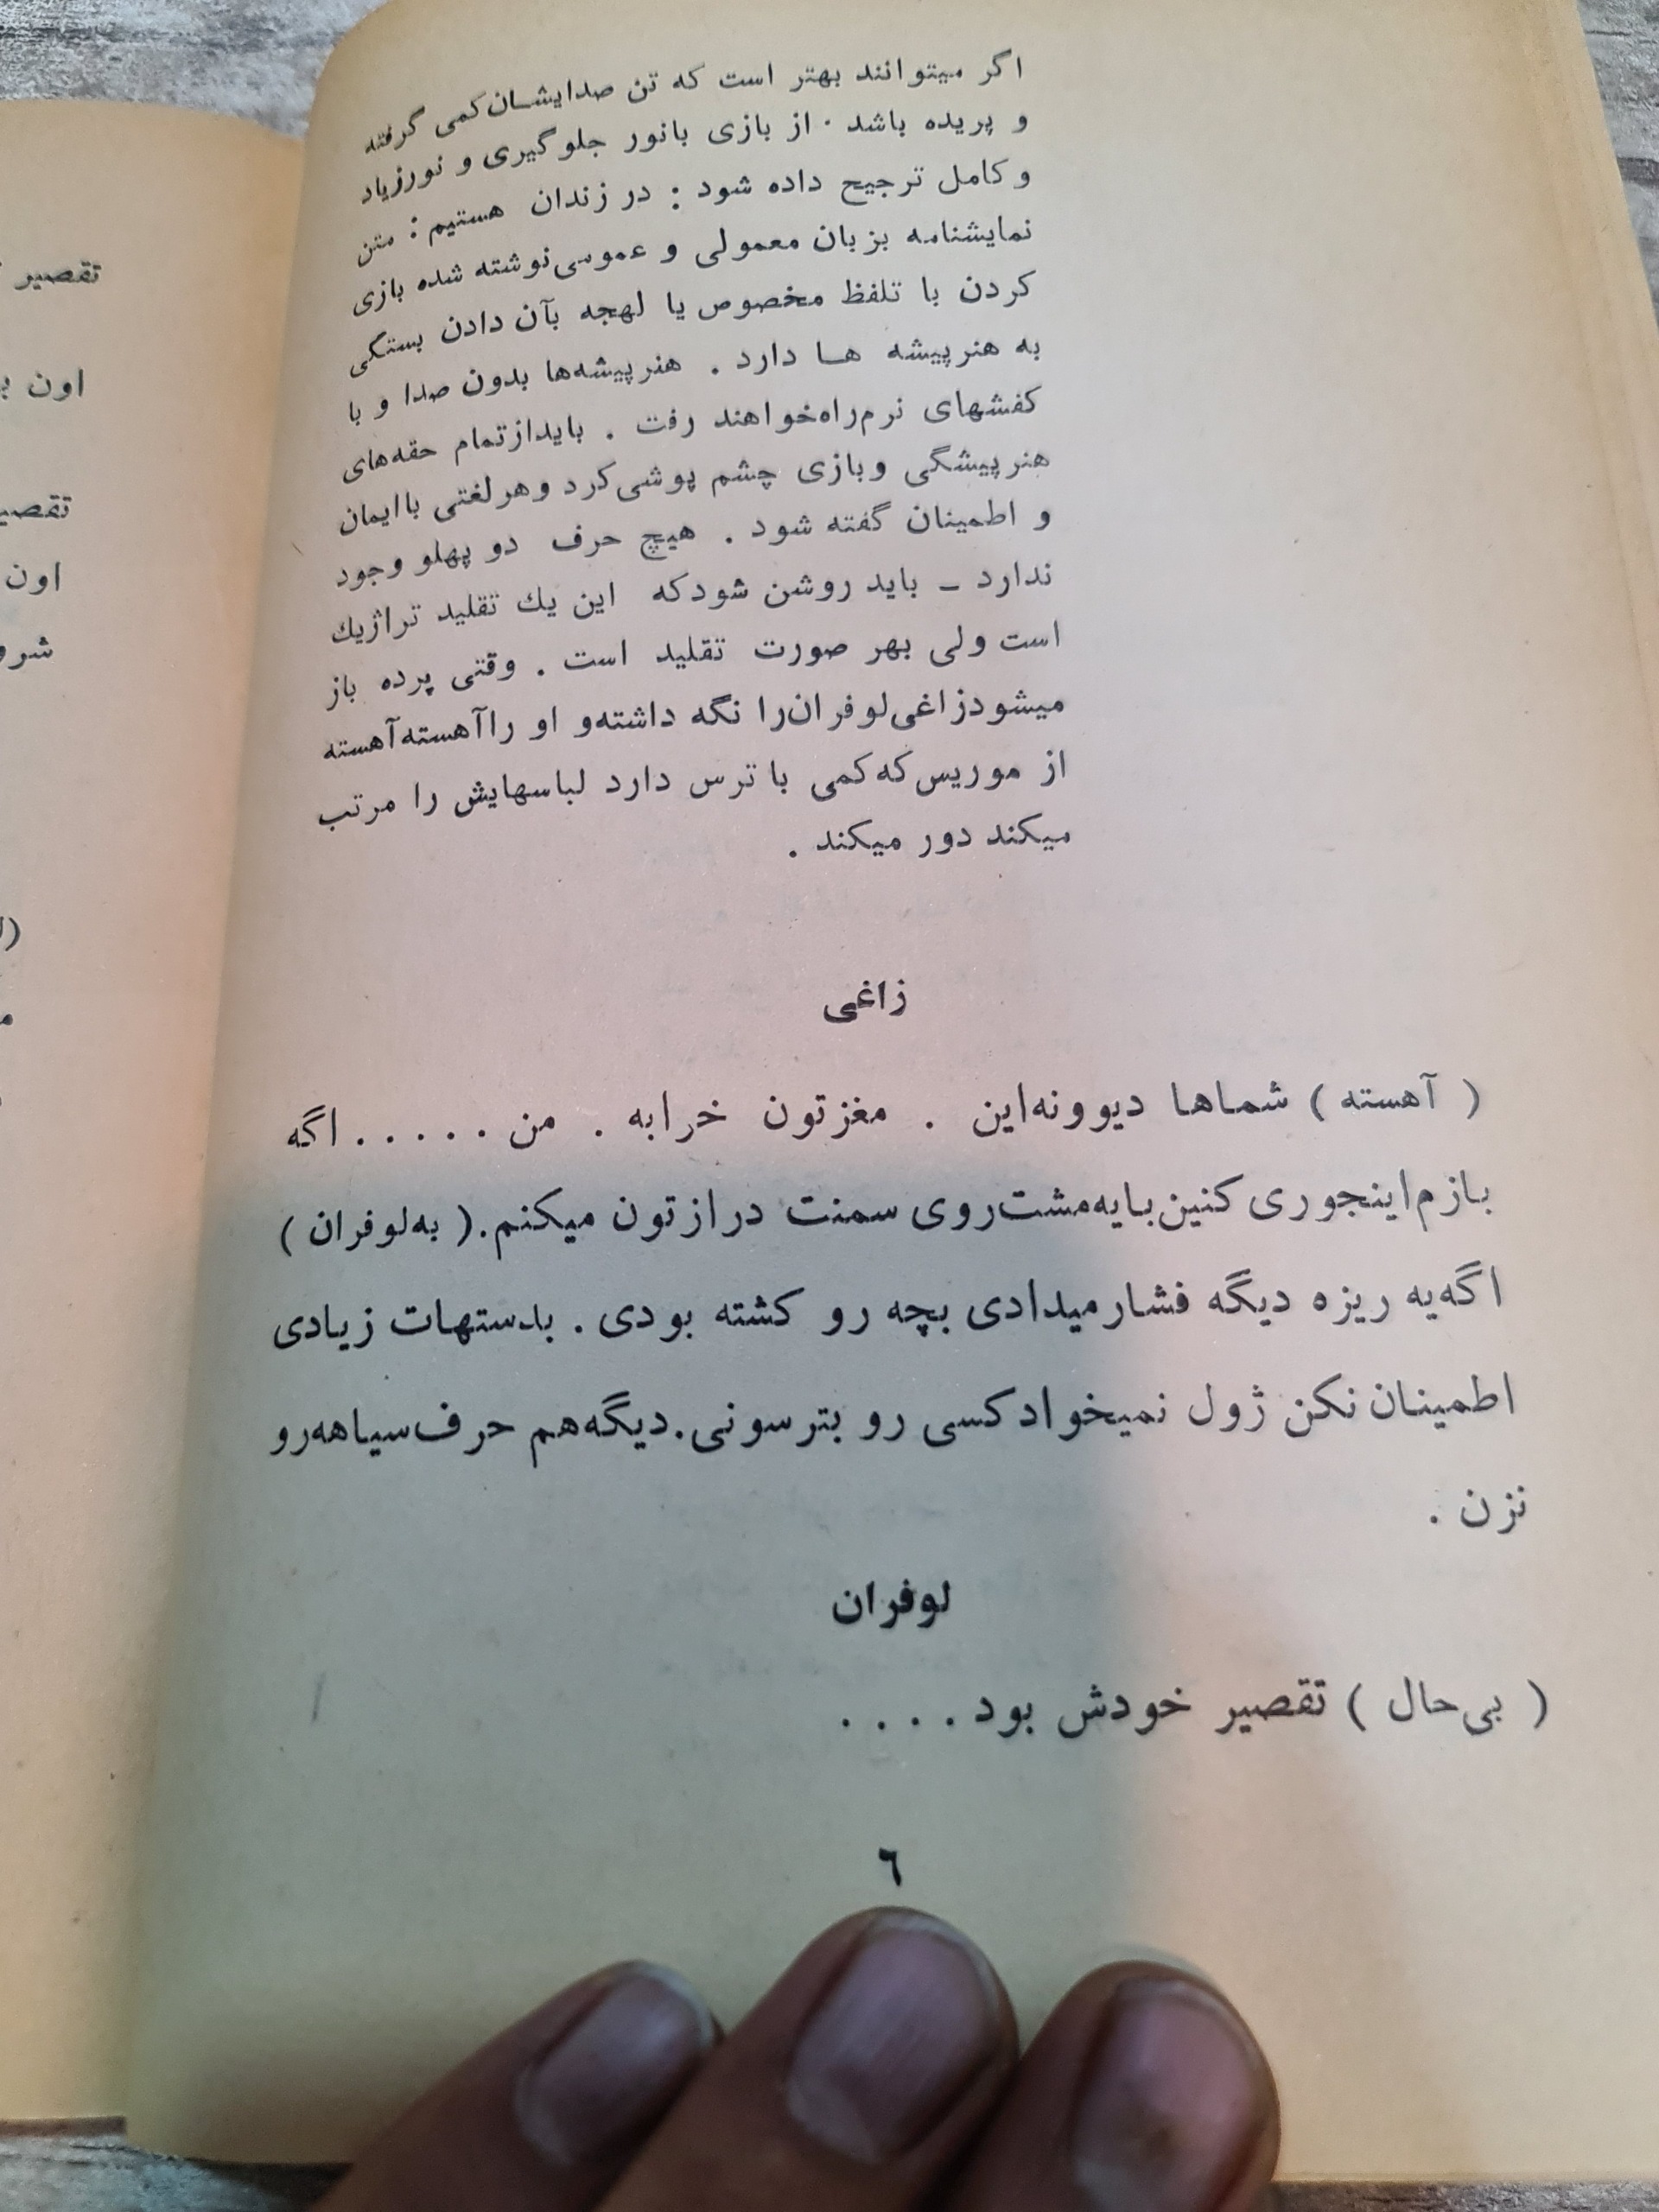 اگر میتوانند بهتر است که تن صدایشان‌کمی گرفته
و پریده باشد . از بازی بانور جلوگیری و نورزیاد
و کامل ترجیح داده شود : در زندان هستیم : متن
نمایشنامه بزبان معمولی و عمومی‌نوشته شده بازی
کردن با تلفظ مخصوص یا لهجه بآن دادن بستگی
به هنرپیشه هـا دارد . هنرپیشه‌ها بدون صدا و با
کفشهای نرم‌راه‌خواهند رفت . بایدازتمام حقه‌های
هنرپیشگی وبازی چشم پوشی‌کرد وهرلغتی باایمان
و اطمینان گفته شود . هیچ حرف دو پهلو وجود
ندارد ـ باید روشن شودکه این یك تقلید تراژیك
است ولی بهر صورت تقلید است . وقتی پرده باز
میشودزاغی‌لوفران‌را نگه داشته‌و او راآهسته‌آهسته
از موریس‌که‌کمی با ترس دارد لباسهایش را مرتب
میکند دور میکند .
زاغی
( آهسته ) شماها دیوونه‌این . مغزتون خرابه . من ..... اگه
بازم‌اینجوری کنین‌بایه‌مشت‌روی سمنت درازتون میکنم.( به‌لوفران )
اگه‌یه ریزه دیگه فشارمیدادی بچه رو کشته بودی . بدستهات زیادی
اطمینان نکن ژول نمیخواد کسی رو بترسونی.دیگه‌هم حرف‌سیاهه‌رو
نزن .
لوفران
( بی‌حال ) تقصیر خودش بود ....
٦
تقصیر
اون
اون